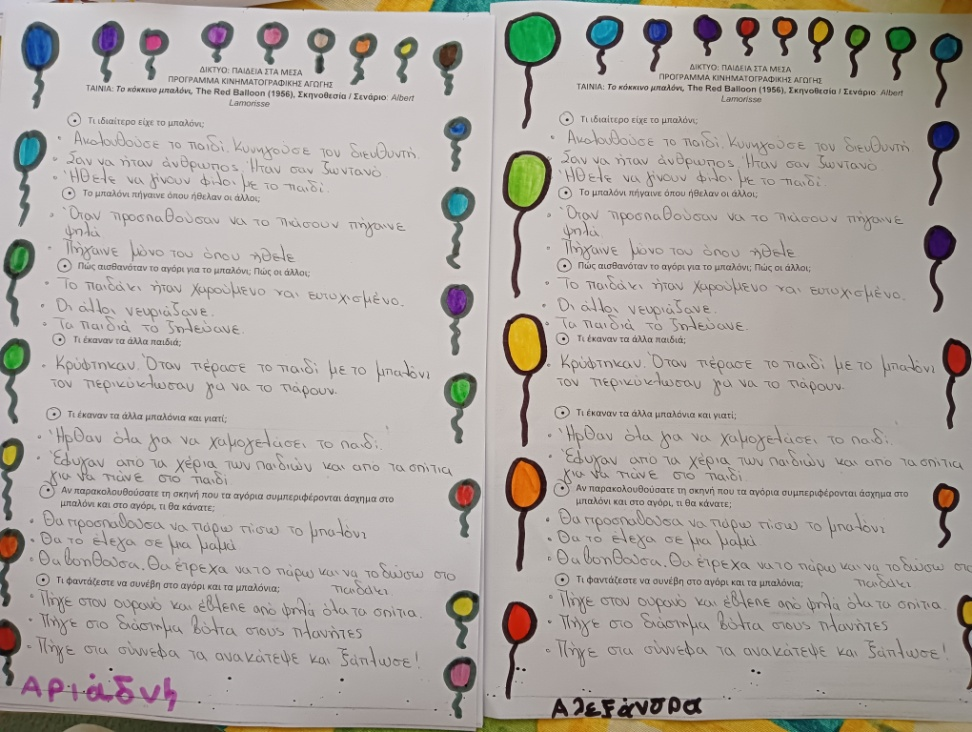 ΔΙΚΤΥΟ: ΠΑΙΔΕΙΑ ΣΤΑ ΜΕΣΑ
ΠΡΟΓΡΑΜΜΑ ΚΙΝΗΜΑΤΟΓΡΑΦΙΚΗΣ ΑΓΩΓΗΣ
ΤΑΙΝΙΑ: Το κόκκινο μπαλόνι, The Red Balloon (1956), Σκηνοθεσία / Σενάριο: Albert
Lamorisse
Τι ιδιαίτερο είχε το μπαλόνι;
Ακολουθούσε το παιδί. Κυνηγούσε τον διευθυντή.
Σαν να ήταν άνθρωπος. Ήταν σαν ζωντανό.
Ήθελε να γίνουν φίλοι με το παιδί.
Το μπαλόνι πήγαινε όπου ήθελαν οι άλλοι;
Όταν προσπαθούσαν να το πιάσουν πήγαινε
ψηλά.
Πήγαινε μόνο του όπου ήθελε
Πώς αισθανόταν το αγόρι για το μπαλόνι; Πώς οι άλλοι;
Το παιδάκι ήταν χαρούμενο και ευτυχισμένο.
Οι άλλοι νευριάζανε.
Τα παιδιά το ζηλεύανε.
Τι έκαναν τα άλλα παιδιά;
Κρύφτηκαν. Όταν πέρασε το παιδί με το μπαλόνι
τον περικύκλωσαν για να το πάρουν.
Τι έκαναν τα άλλα μπαλόνια και γιατί;
Ήρθαν όλα για να χαμογελάσει το παιδί.
Έφυγαν από τα χέρια των παιδιών και από τα σπίτια
για να πάνε στο παιδί
Αν παρακολουθούσατε τη σκηνή που τα αγόρια συμπεριφέρονται άσχημα στο
μπαλόνι και στο αγόρι, τι θα κάνατε;
Θα προσπαθούσα να πάρω πίσω το μπαλόνι
Θα το έλεγα σε μια μαμά
Θα βοηθούσα. Θα έτρεχα να το πάρω και να το δώσω στο
παιδάκι.
Τι φαντάζεστε να συνέβη στο αγόρι και τα μπαλόνια;
Πήγε στον ουρανό και έβλεπε από ψηλά όλα τα σπίτια.
Πήγε στο διάστημα βόλτα στους πλανήτες
Πήγε στα σύννεφα τα ανακάτεψε και ξάπλωσε!
Αριάδνη
ΔΙΚΤΥΟ: ΠΑΙΔΕΙΑ ΣΤΑ ΜΕΣΑ
ΠΡΟΓΡΑΜΜΑ ΚΙΝΗΜΑΤΟΓΡΑΦΙΚΗΣ ΑΓΩΓΗΣ
ΤΑΙΝΙΑ: Το κόκκινο μπαλόνι, The Red Balloon (1956), Σκηνοθεσία / Σενάριο: Albert
Lamorisse
Τι ιδιαίτερο είχε το μπαλόνι;
Ακολουθούσε το παιδί. Κυνηγούσε τον διευθυντή.
Σαν να ήταν άνθρωπος. Ήταν σαν ζωντανό.
Ήθελε να γίνουν φίλοι με το παιδί.
Το μπαλόνι πήγαινε όπου ήθελαν οι άλλοι;
Όταν προσπαθούσαν να το πιάσουν πήγαινε
ψηλά.
Πήγαινε μόνο του όπου ήθελε
Πώς αισθανόταν το αγόρι για το μπαλόνι; Πώς οι άλλοι;
Το παιδάκι ήταν χαρούμενο και ευτυχισμένο.
Οι άλλοι νευριάζανε.
Τα παιδιά το ζηλεύανε.
Τι έκαναν τα άλλα παιδιά;
Κρύφτηκαν. Όταν πέρασε το παιδί με το μπαλόνι
τον περικύκλωσαν για να το πάρουν.
Τι έκαναν τα άλλα μπαλόνια και γιατί;
Ήρθαν όλα για να χαμογελάσει το παιδί.
Έφυγαν από τα χέρια των παιδιών και από τα σπίτια
για να πάνε στο παιδί
Αν παρακολουθούσατε τη σκηνή που τα αγόρια συμπεριφέρονται άσχημα στο
μπαλόνι και στο αγόρι, τι θα κάνατε;
Θα προσπαθούσα να πάρω πίσω το μπαλόνι
Θα το έλεγα σε μια μαμά
Θα βοηθούσα. Θα έτρεχα να το πάρω και να το δώσω στο
παιδάκι.
Τι φαντάζεστε να συνέβη στο αγόρι και τα μπαλόνια;
Πήγε στον ουρανό και έβλεπε από ψηλά όλα τα σπίτια.
Πήγε στο διάστημα βόλτα στους πλανήτες
Πήγε στα σύννεφα τα ανακάτεψε και ξάπλωσε!
Αλεξάνδρα